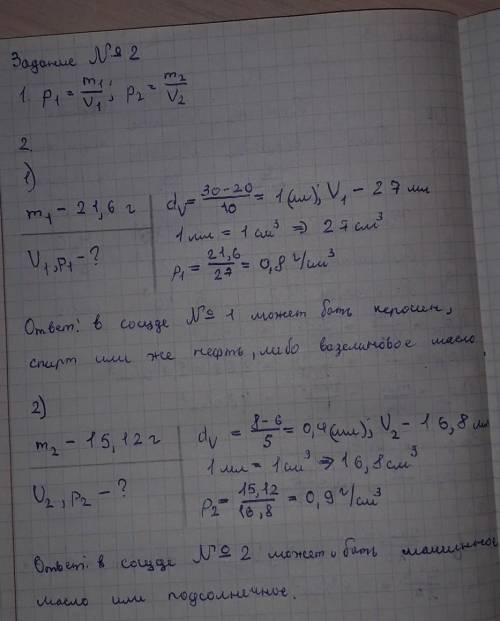 Задание № 2
1. ρ₁ = m₁/V₁; ρ₂ = m₂/V₂
2.
1)
m₁ – 21,6 г
V₁, ρ₁ – ?
d_V = (30–20)/10 = 1 (мл); V₁ – 27 мл
1 мл = 1 см³ ⇒ 27 см³
ρ₁ = 21,6/27 = 0,8 г/см³
Ответ: в сосуде № 1 может быть керосин,
спирт или же нефть, либо вазелиновое масло.
2)
m₂ – 15,12 г
V₂, ρ₂ – ?
d_V = (8–6)/5 = 0,4 (мл); V₂ – 16,8 мл
1 мл = 1 см³ ⇒ 16,8 см³
ρ₂ = 15,12/16,8 = 0,9 г/см³
Ответ: в сосуде № 2 может быть машинное
масло или подсолнечное.